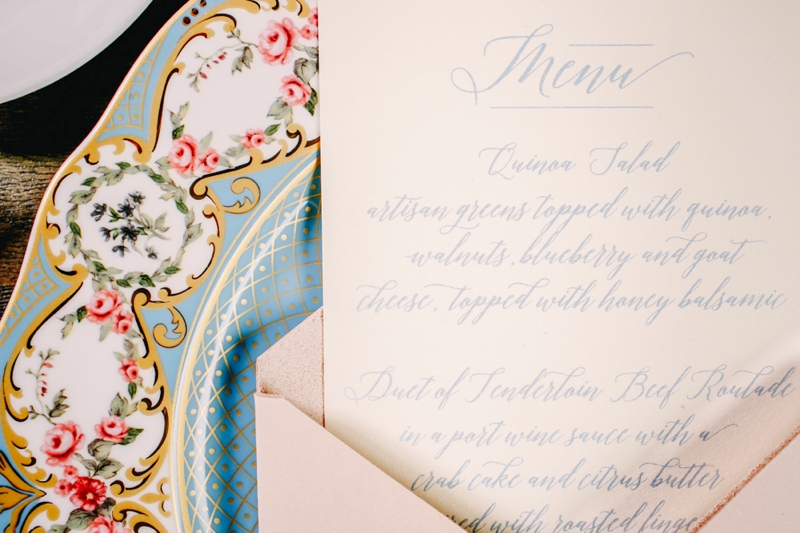 Menu
Quinoa Salad
artisan greens topped with quinoa,
walnuts, blueberry and goat
cheese, topped with honey balsamic
Duet of Tenderloin Beef Roulade
in a port wine sauce with a
crab cake and citrus butter
with roasted